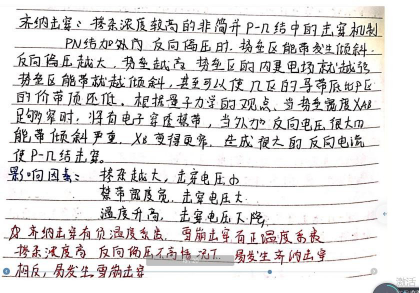 齐纳击穿：掺杂浓度较高的非简并P-N结中的击穿机制
PN结加外加反向偏压时，势垒区能带发生倾斜。
反向偏压越大，势垒越高，势垒区的内建电场就越强
势垒区能带就越倾斜，甚至可以使N区的导带底比P区
的价带顶还低。根据量子力学的观点，当势垒宽度XAB
足够窄时，将有电子穿透禁带，当外加反向电压很大时
能带倾斜严重，XB变得更窄，造成很大的反向电流
使P-N结击穿。
影响因素：掺杂越大，击穿电压小
禁带宽度宽，击穿电压大
温度升高，击穿电压下降
齐纳击穿有负温度系数，雪崩击穿有正温度系数
掺杂浓度高，反向偏压不高情况下，易发生齐纳击穿
相反，易发生雪崩击穿
激活